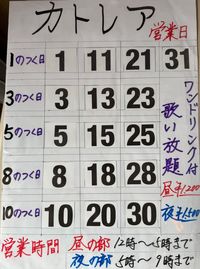 カトレア
営業日
1のつく日 1 11 21 31
3のつく日 3 13 23
5のつく日 5 15 25
8のつく日 8 18 28
10のつく日 10 20 30
ワンドリンク付
歌い放題
昼¥1,200
夜¥1,500
営業時間 昼の部 12時~5時まで
夜の部 5時~9時まで